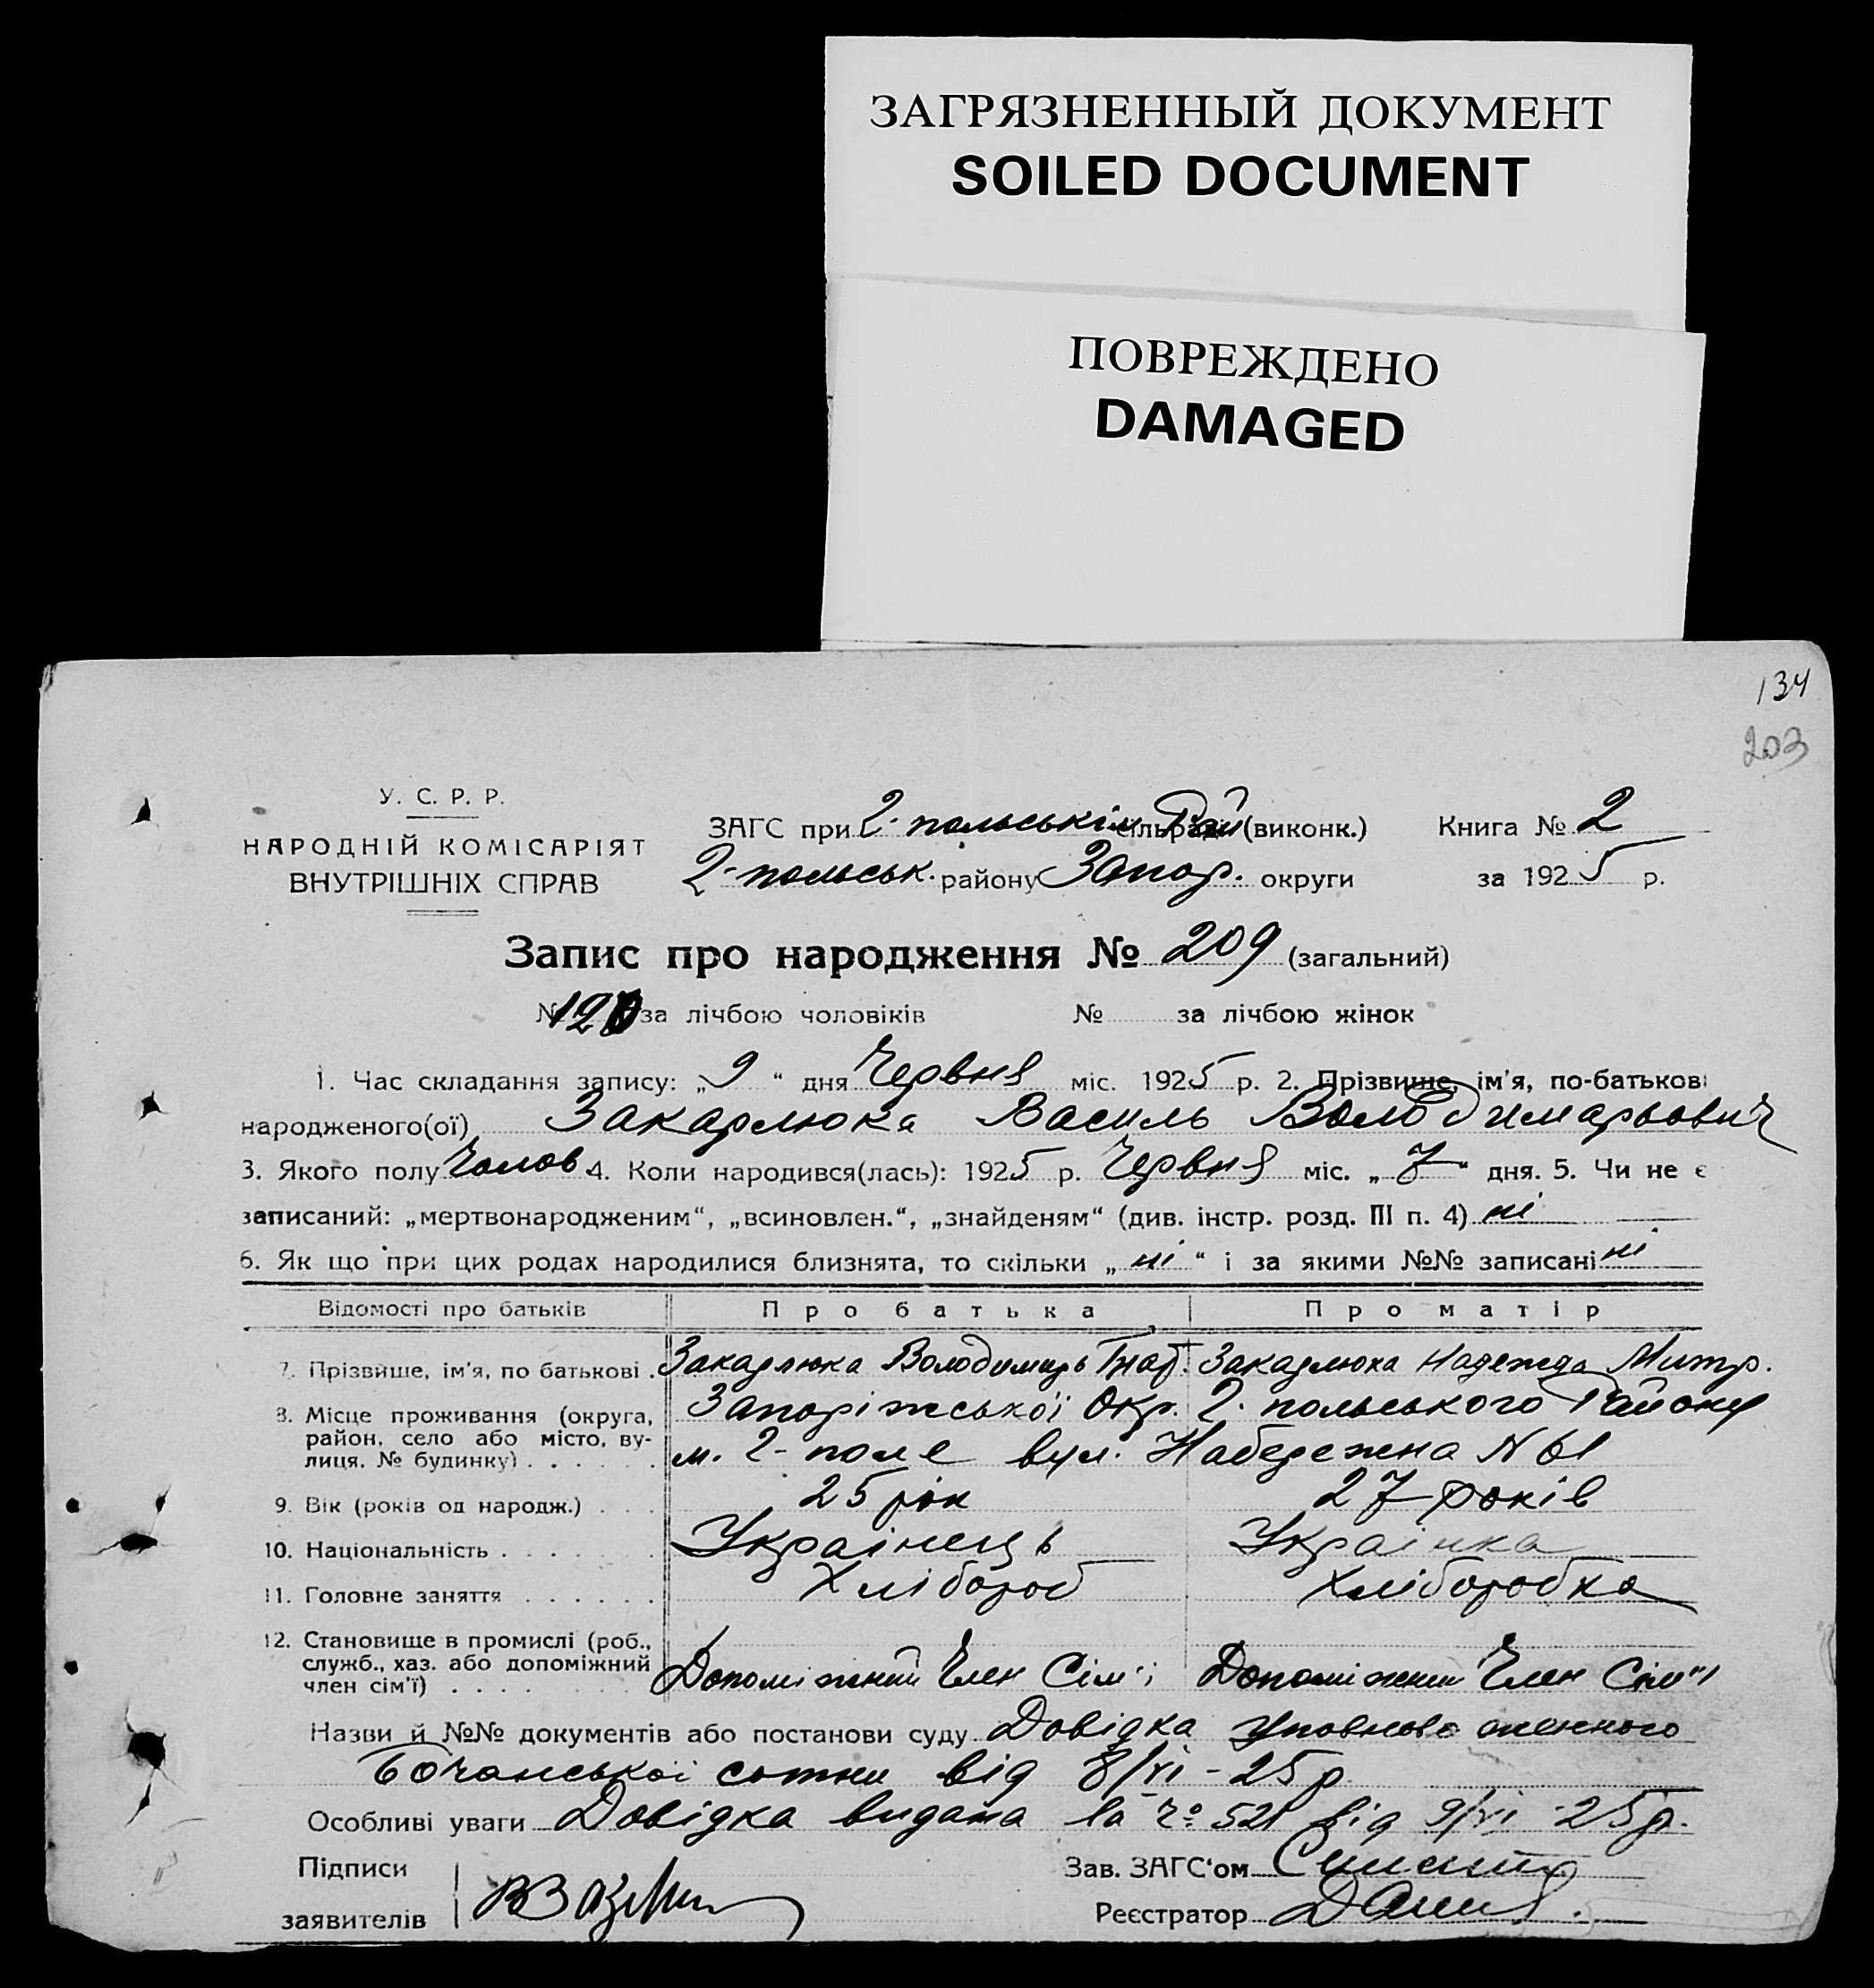 ЗАГРЯЗНЕННЫЙ ДОКУМЕНТ
SOILED DOCUMENT
ПОВРЕЖДЕНО
DAMAGED
134
203
У. С. Р. Р.
НАРОДНІЙ КОМІСАРІЯТ
ВНУТРІШНІХ СПРАВ
ЗАГС при 2-польськім Рай (виконк.) Книга № 2
2-польськ. району Запор. округи за 1925 р.
Запис про народження № 209 (загальний)
№ 120 за лічбою чоловіків № за лічбою жінок
1. Час складання запису: „9“ дня Червня міс. 1925 р. 2. Прізвище, ім'я, по-батькові
народженого(ої) Закарлюка Василь Володимарьович
3. Якого полу Чолов. 4. Коли народився(лась): 1925 р. Червня міс. „7“ дня. 5. Чи не є
записаний: „мертвонародженим“, „всиновлен.“, „знайденям“ (див. інстр. розд. III п. 4) ні
6. Як що при цих родах народилися близнята, то скільки „ні“ і за якими №№ записані ні
Відомості про батьків Про батька Про матір
7. Прізвише, ім'я, по батькові . Закарлюка Володимирь Гнат. Закарлюка Надежда Митр.
8. Місце проживання (округа, Запоріжської Окр. 2-польського Району
район, село або місто, ву-
лиця. № будинку) . . . . . . м. 2-поле вул. Набережна N 61
9. Вік (років од народж.) . . . 25 рік 27 років
10. Національність . . . . . . . Українець Українка
11. Головне заняття . . . . . . Хлібороб Хліборобка
12. Становище в промислі (роб.,
служб., хаз. або допоміжний
член сім'ї) . . . . Допоміжний Член Сім'ї Допоміжний Член Сім'ї
Назви й №№ документів або постанови суду Довідка Уповноваженного
Бочанської сотни від 8/VI - 25 р
Особливі уваги Довідка видана за № 521 від 9/VI - 25 р.
Підписи Зав. ЗАГС'ом
заявителів Реєстратор